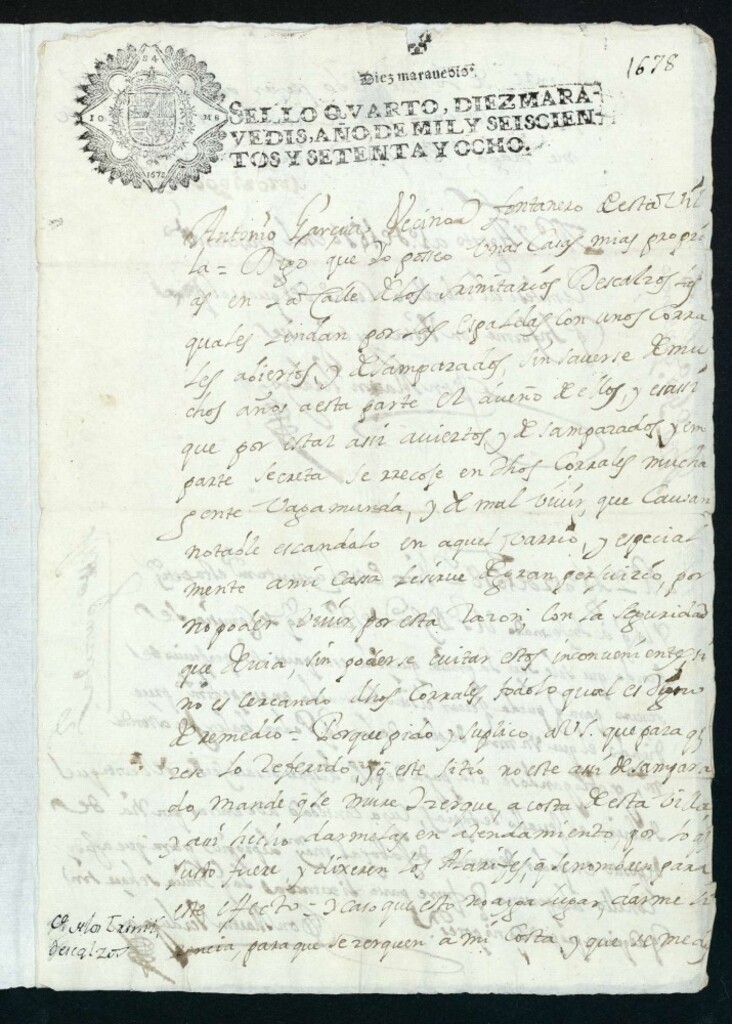 1678
Diez maravedis.
SELLO QVARTO, DIEZ MARA-
VEDIS, AÑO DE MIL Y SEISCIEN-
TOS Y SETENTA Y OCHO.
Antonio Garcia, Vecino y fontanero desta Vil
la = Digo que Yo poseo Unas Casas mias propri
as en la Calle de los trinitarios Descalzos las
quales lindan por las Espaldas con unos Corra
les aviertos, y desamparados, sin saverse de mu
chos años aesta parte el dueño dellos, y es assi
que por estar assi aviertos y desamparados y em
parte secreta se rrecose en dhos Corrales mucha
gente Vagamunda, y de mal vivir, que Causan
notable escandalo en aquel varrio, y especial
mente ami Cassa le sirve de gran perjuicio, por
no poder vivir por esta razon, con la seguridad
que devia, sin poderse evitar estos inconvenientes, si
no es cercando dhos Corrales, todo lo qual es digno
de remedio = Porque pido y suplico a V.S. que para q
cese lo referido, y q este sitio no este assi desampara
do, mande q se mure y zerque, a costa desta Villa
y assi hecho darmelas en arrendamiento, por lo q
justo fuere, y dixeren los Alarifes, q se nombren para
este effecto = y caso que esto no aya lugar, darme li
cencia, para que se zerquen a mi Costa y que se me de
Cº de los Trinitº
descalzos